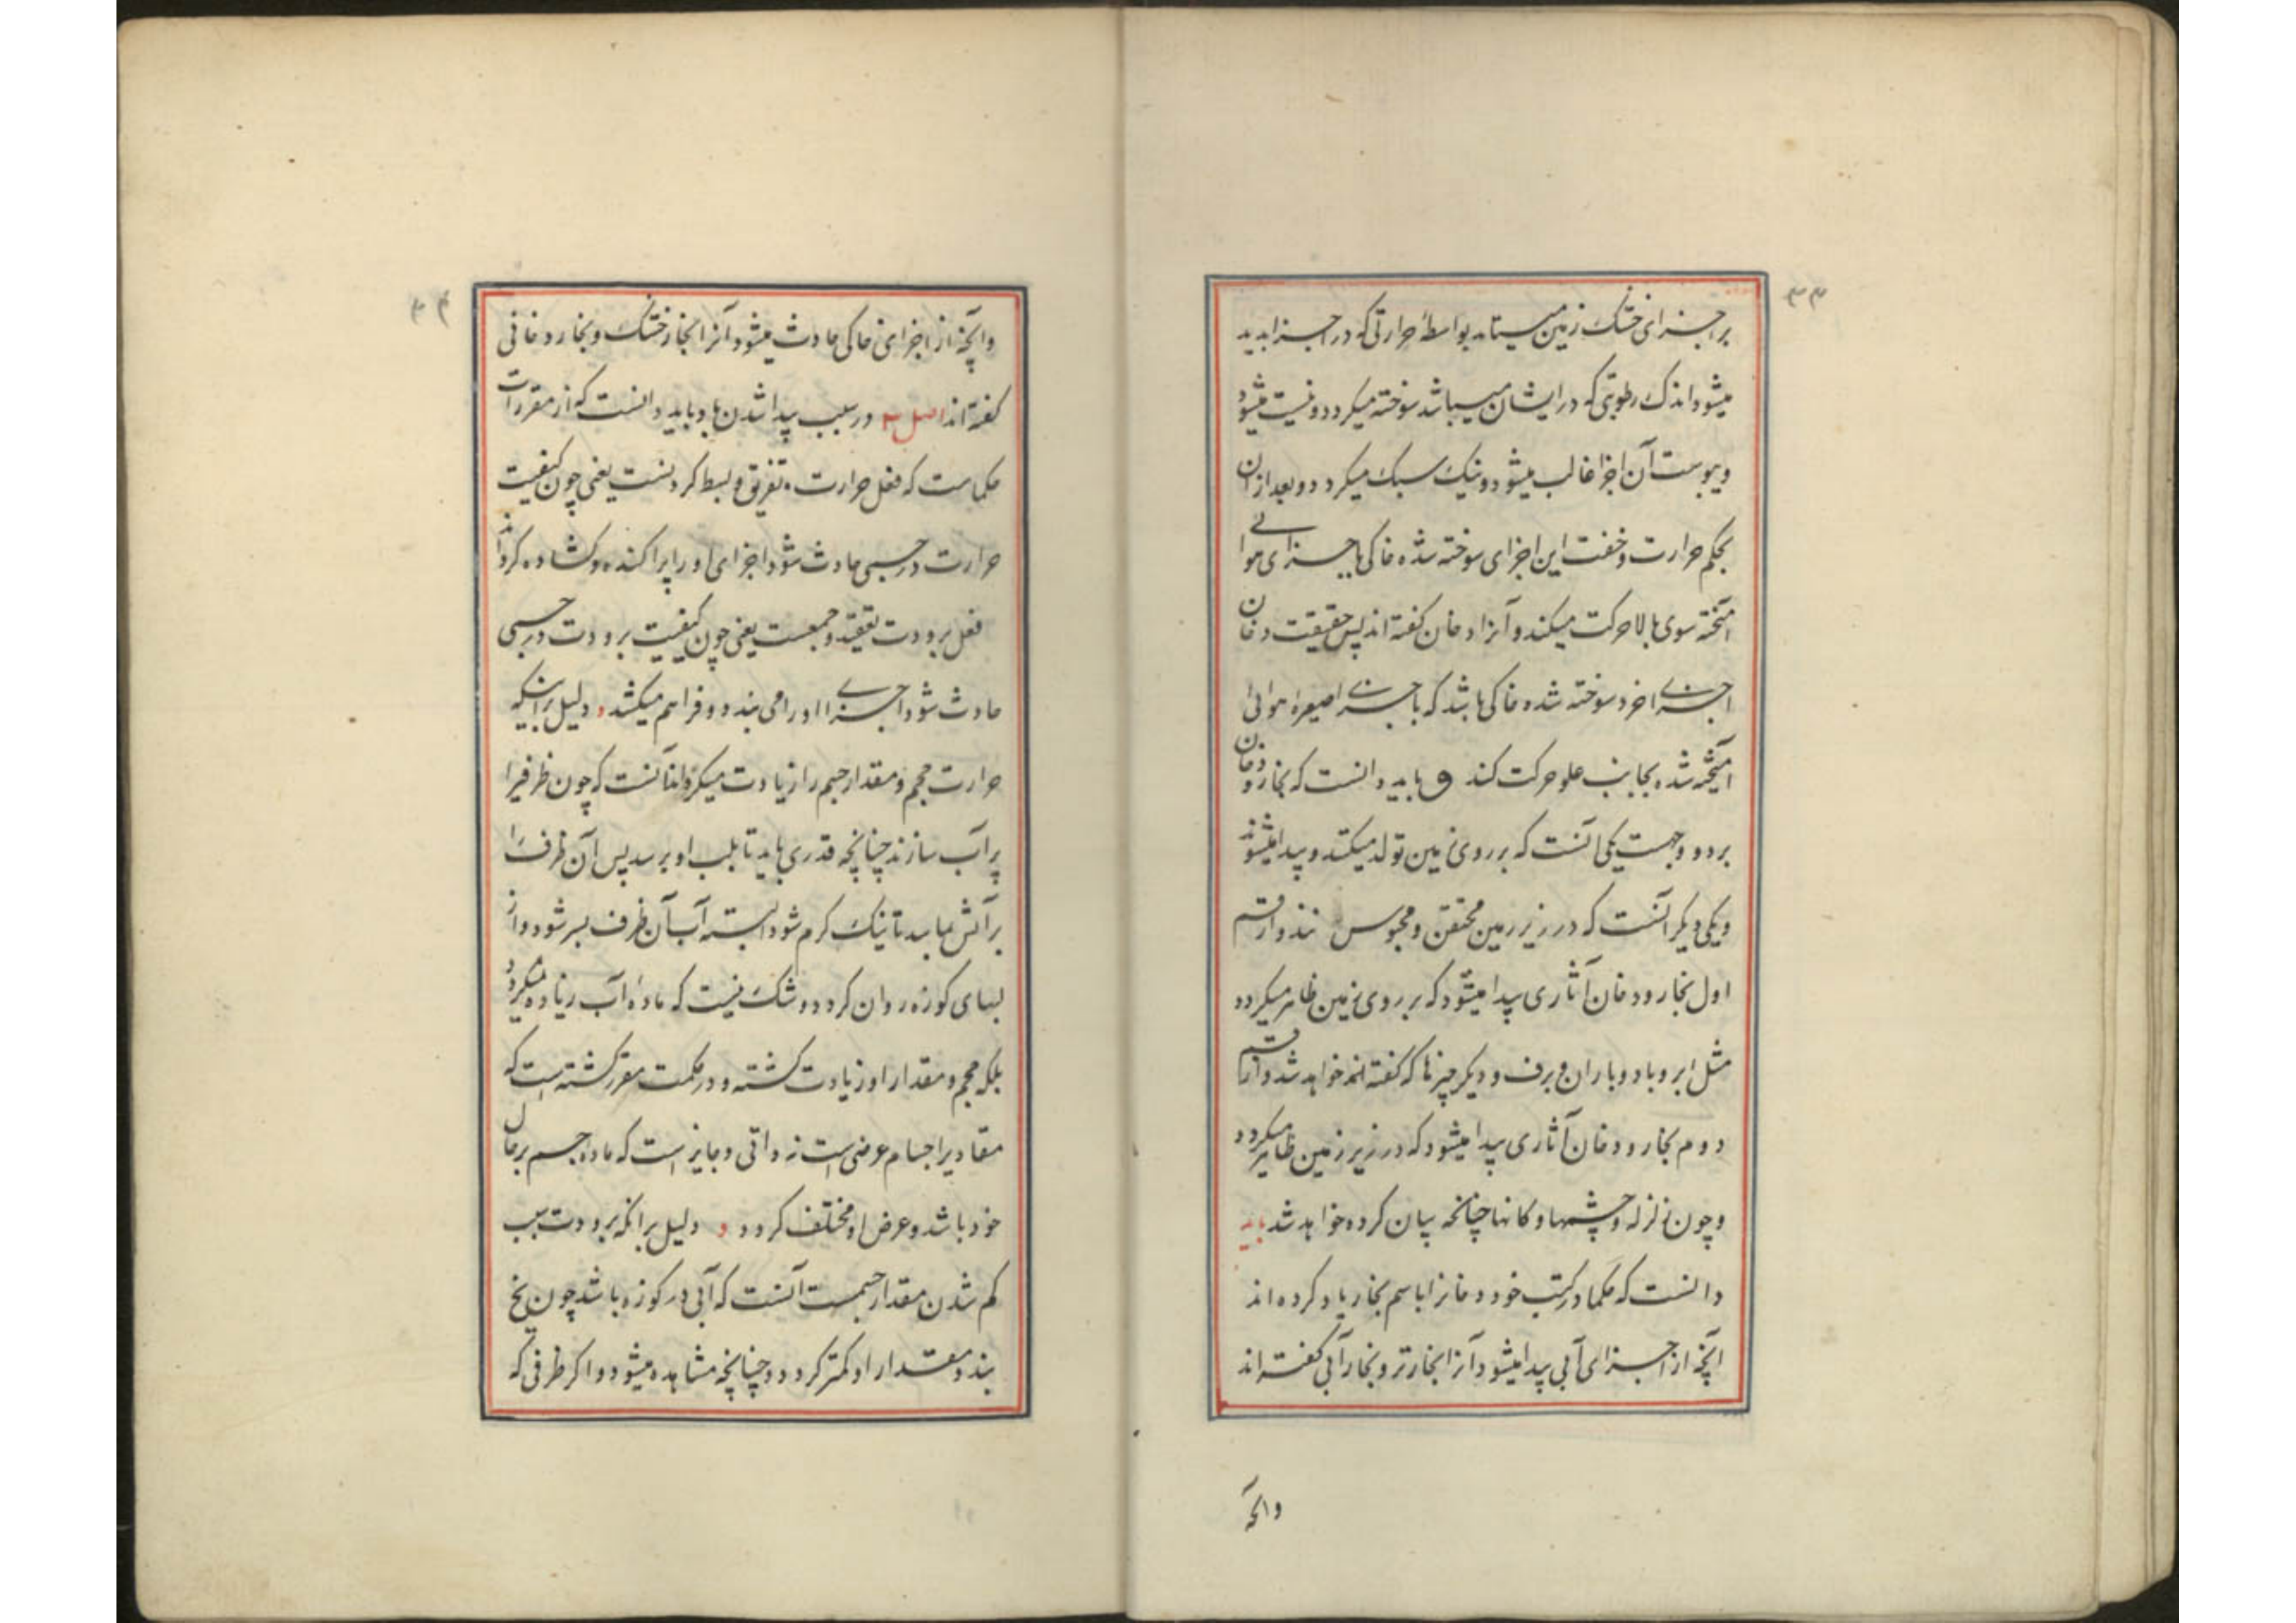 ۳۳
بر اجزای خشک زمین میتابد بواسطهٔ حرارتی که در اجزا پدید
میشود اندک رطوبتی که در ایشان میباشد سوخته میکردد و نیست میشود
و یبوست آن اجزا غالب میشود و نیک سبک میکردد و بعد از ان
بحکم حرارت و خفت این اجزای سوخته شده خاکی با اجزای هوائی
آمیخته سوی بالا حرکت میکند و آنرا دخان کفته اند پس حقیقت دخان
اجزای خرد سوخته شده خاکی باشد که با اجزای صغیره هوائی
آمیخته شده بجانب علو حرکت کند و باید دانست که بخار و دخان
بر دو وجهست یکی آنست که بر روی زمین تولد میکند و پیدا میشوند
و یکی دیکر آنست که در زیر زمین محتقن و محبوس شوند و از قسم
اول بخار و دخان آثاری پیدا میشود که بر روی زمین ظاهر میکردد
مثل ابر و باد و باران و برف و دیکر چیزها که کفته خواهد شد و از قسم
دوم بخار و دخان آثاری پیدا میشود که در زیر زمین ظاهر میکردد
و چون زلزله و چشمها و کانها چنانچه بیان کرده خواهد شد باید
دانست که حکما در کتب خود دخانرا باسم بخار یاد کرده اند
آنچه از اجزای آبی پیدا میشود آنرا بخار تر و بخار آبی کفته اند
وانچه
۳۴
و آنچه از اجزای خاکی حادث میشود آنرا بخار خشک و بخار دخانی
کفته اند اصل ۲ در سبب پیدا شدن باد باید دانست که از مقررات
حکماست که فعل حرارت تفریق و بسط کردنست یعنی چون کیفیت
حرارت در جسمی حادث شود اجزای او را پراکنده و کشاده کرداند
فعل برودت تعقید و جمعست یعنی چون کیفیت برودت در جسمی
حادث شود اجزای او را می بندد و فراهم میکشد و دلیل برانکه
حرارت حجم و مقدار جسم را زیادت میکرداند آنست که چون ظرفیرا
پر آب سازند چنانچه قدری باید تا بلب او برسد پس آن ظرف را
بر آتش نهابید تا نیک کرم شود البته آب آن ظرف بسر شود و از
لبهای کوزه روان کردد و شک نیست که مادهٔ آب زیاده نمیکردد
بلکه حجم و مقدار او زیادت کشته و در حکمت مقرر کشته است که
مقادیر اجسام عرضی است نه ذاتی و جایز است که ماده جسم بر حال
خود باشد و عرض او مختلف کردد و دلیل برانکه برودت سبب
کم شدن مقدار جسمست آنست که آبی در کوزه باشد چون یخ
بندد مقدار او کمتر کردد و چنانچه مشاهده میشود و اکر ظرفی که